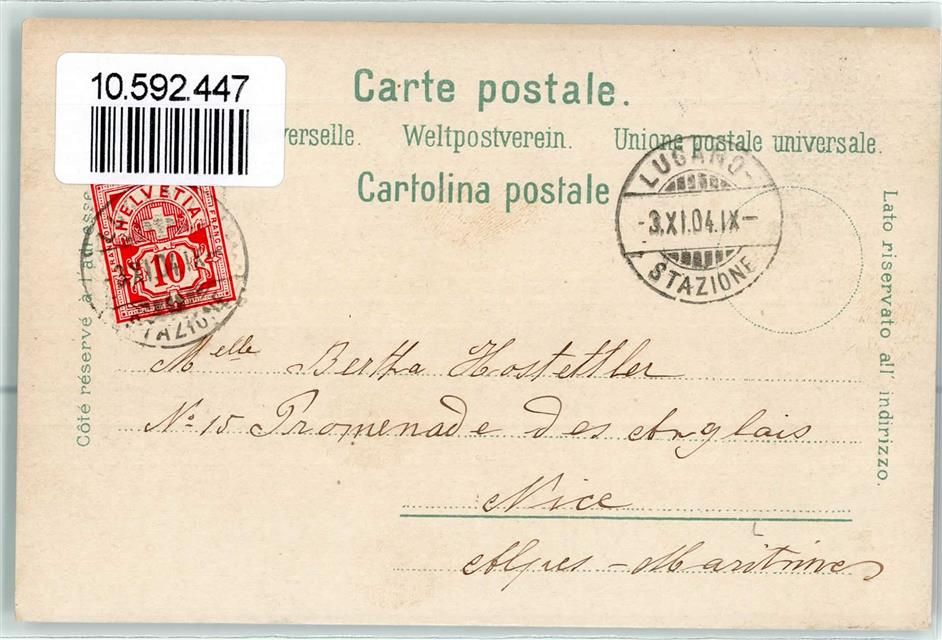 10.592.447
Carte postale.
verselle. Weltpostverein. Unione postale universale.
Cartolina postale
HELVETIA
FRANCO
10
LUGANO-
-3.XI.04.IX-
STAZIONE
Côté réservé à l'adresse
Lato riservato all' indirizzo.
Melle Bertha Hostettler
No 15 Promenade des Anglais
Nice
Alpes-Maritimes